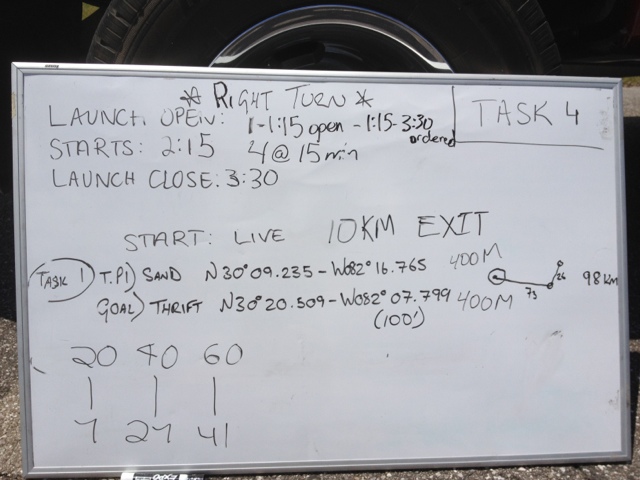 * RIGHT TURN *
TASK 4
LAUNCH OPEN: 1-1:15 open - 1:15-3:30 ordered
STARTS: 2:15 4 @ 15 min
LAUNCH CLOSE: 3:30
START: LIVE 10KM EXIT
TASK 1 T.P1) SAND N30° 09.235 - W082° 16.765 400M
GOAL) THRIFT N30° 20.509 - W082° 07.799 400M
(100')
73 26 98 KM
20 40 60
7 27 41